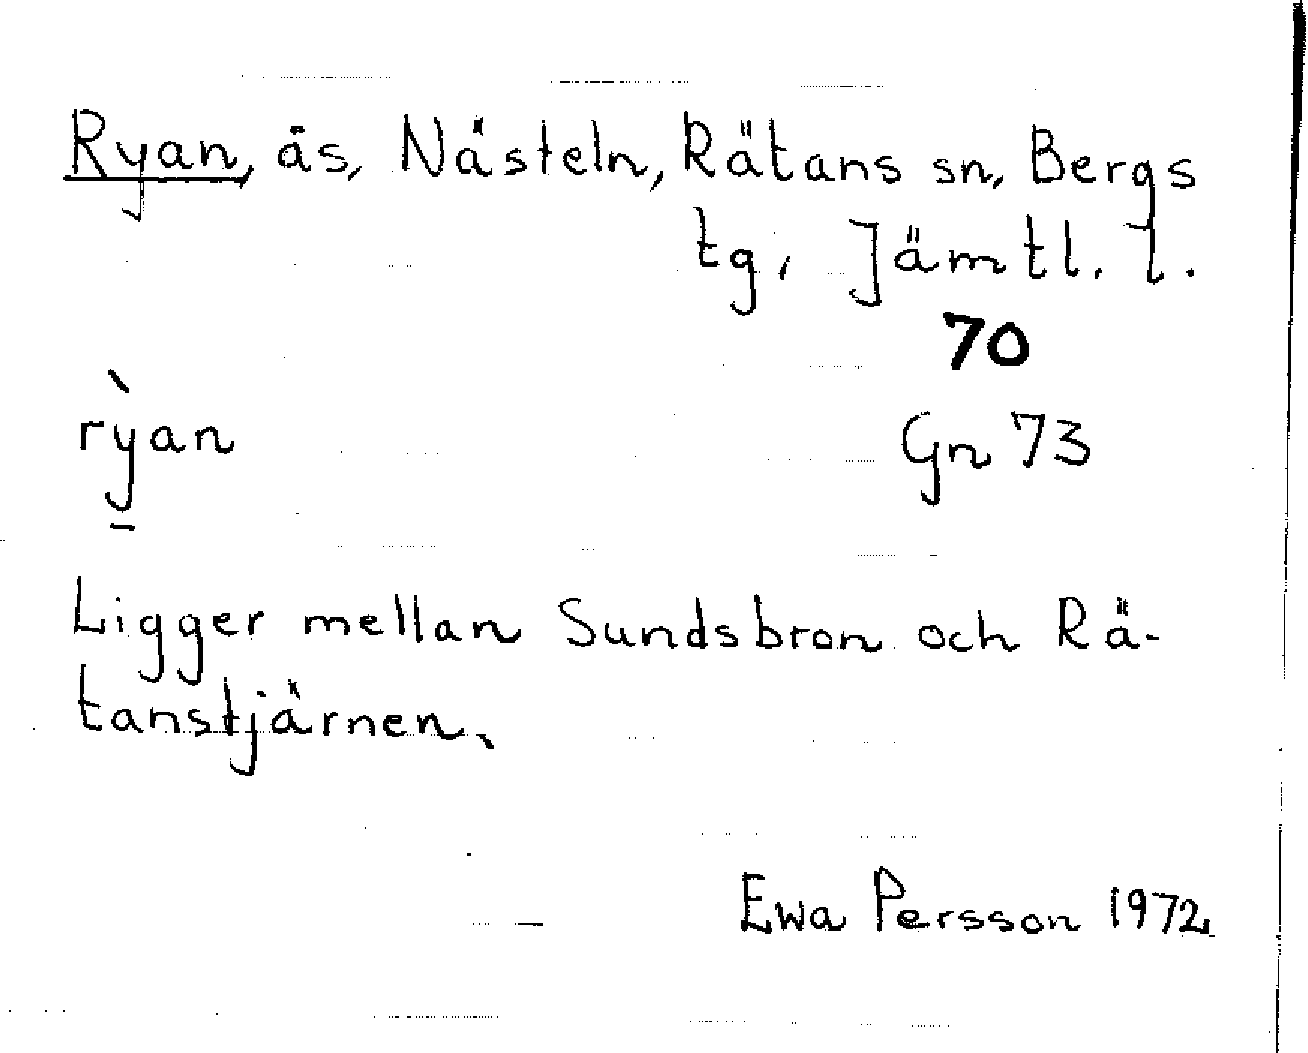 Ryan, ås, Nästeln, Rätans sn, Bergs
tg, Jämtl. l.
70
rỳan
Gn 73
Ligger mellan Sundsbron och Rä-
tanstjärnen.
Ewa Persson 1972